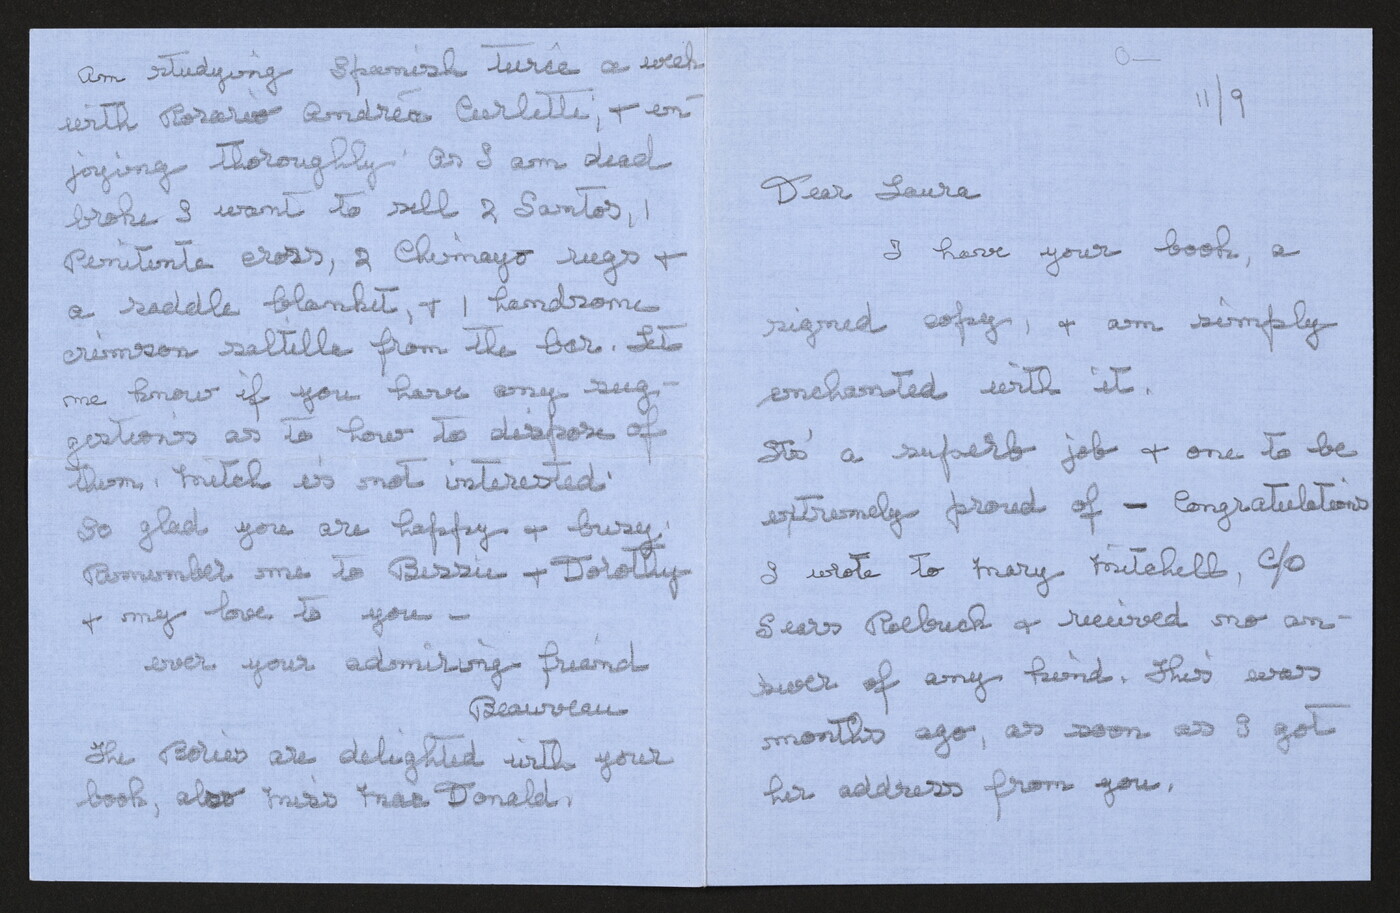 11/9
Dear Laura
I have your book, a
signed copy, & am simply
enchanted with it.
Its' a superb job & one to be
extremely proud of – Congratulations
I wrote to Mary Mitchell, C/O
Sears Roebuck & received no an-
swer of any kind. This was
months ago, as soon as I got
her address from you.
Am studying Spanish twice a week
with Rosario Andréa Curletti, & en-
joying thoroughly. As I am dead
broke I want to sell 2 Santos, 1
Penitente cross, 2 Chimayo rugs &
a saddle blanket, & 1 handsome
crimson saltillo from the bar. Let
me know if you have any sug-
gestions as to how to dispose of
them. Mitch is not interested.
So glad you are happy & busy.
Remember me to Bessie & Dorothy
& my love to you –
ever your admiring friend
Beauveau
The Bories are delighted with your
book, also Miss Mac Donald.